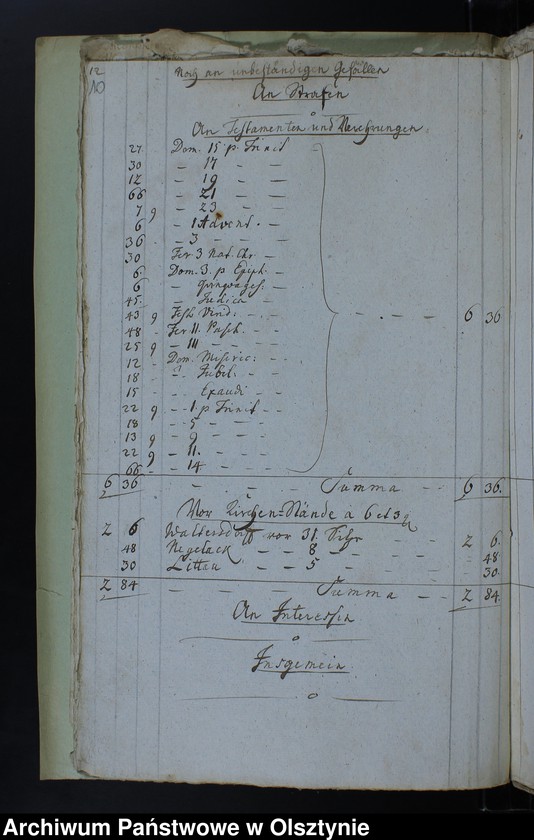 12
10
Noch an unbeständigen Gefällen
An Strafen
An Testamenten und Verehrungen.
27. Dom. 15 p. Trinit
30 – 17 – –
12 – 19 – –
66 – 21 – –
7 9 – 23 – –
6 – 1 Advent. –
36 – 3 – – –
30 Fer. 3 Nat. Chr. –
6. Dom. 3. p Epiph. –
6 – Quinquages: –
45. – Judica –
43 9 Fest. Vis. – – 6 36
48 – Fer. II. Pasch. – –
25 9 – III – – –
12 – Dom. Miseric: – –
18 – Jubil. – –
15 – Exaudi – –
22 9 – 1. p Trinit – –
18 – 5 – – –
13 9 – 9 – – –
22 9 – 11. – – –
66 – – 14 – – –
6 36 – – – – Summa – – 6 36.
Vor Kirchen-Stände a 6 et 3
2 6 Waltersdorff vor 31. – – 2 6.
48 Regelack – 8 – – – 48
30 Littau – 5 – – – 30.
2 84 – – – – Summa – – 2 84.
An Interessen
Insgemein.
Archiwum Państwowe w Olsztynie